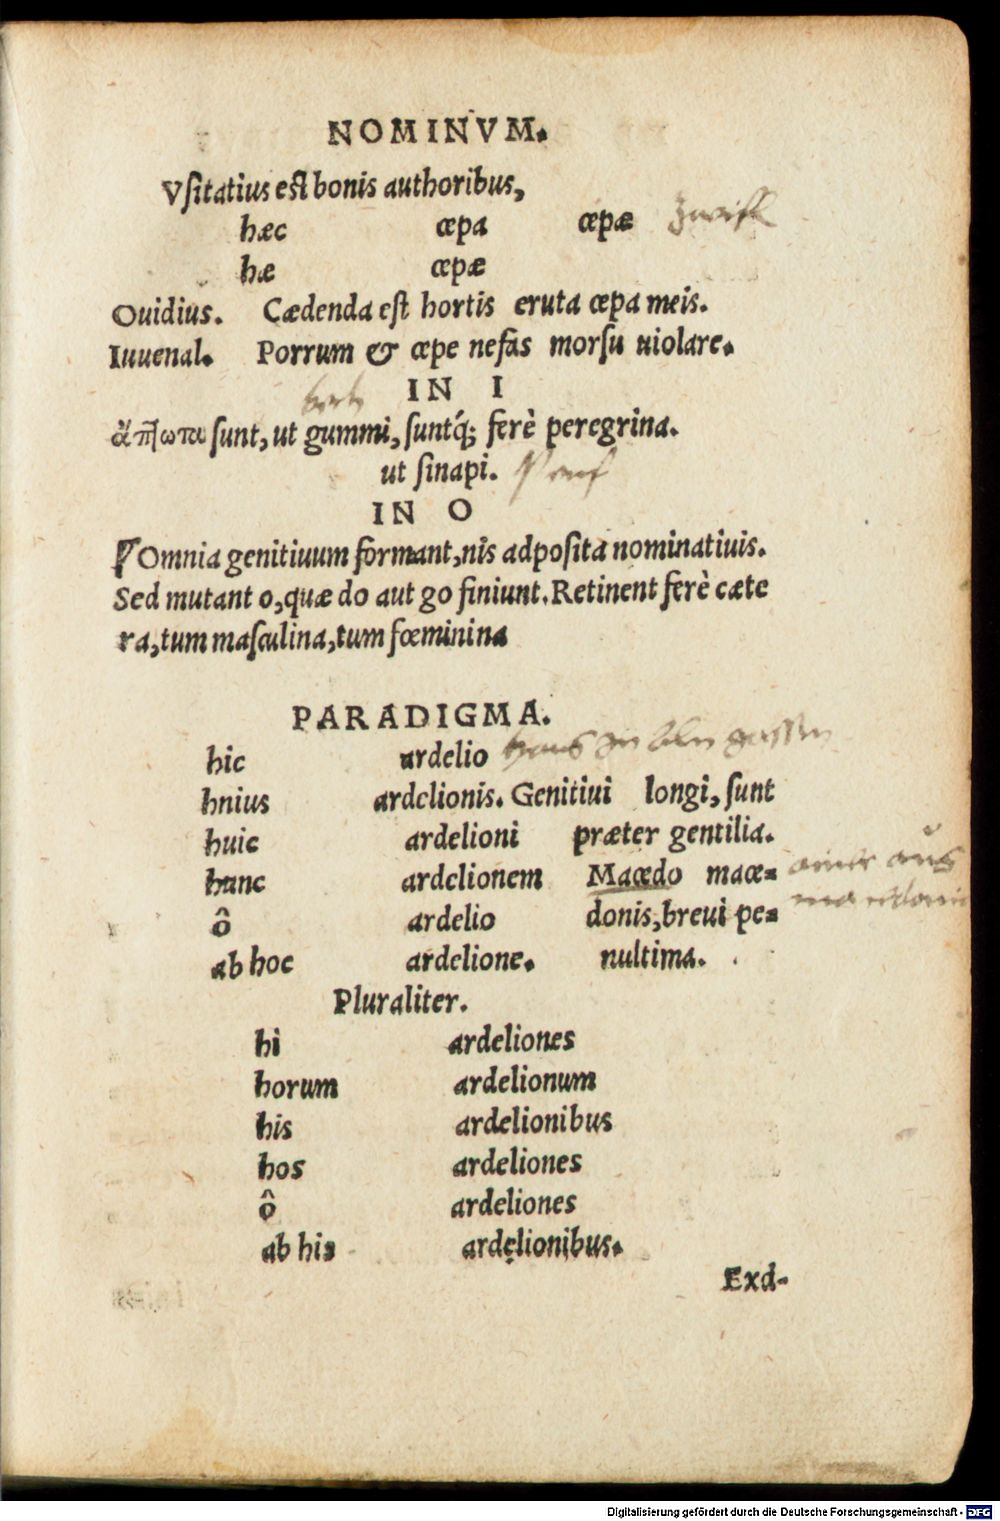 NOMINVM.
Vsitatius est bonis authoribus,
hæc cæpa cæpæ
hæ cæpæ
Ouidius. Cædenda est hortis eruta cæpa meis.
Iuuenal. Porrum & cæpe nefas morsu uiolare.
IN I
ἄπτωτα sunt, ut gummi, suntq́; ferè peregrina.
ut sinapi. Senf
IN O
Omnia genitiuum formant, nis adposita nominatiuis.
Sed mutant o, quæ do aut go finiunt. Retinent ferè cæte
ra, tum masculina, tum fœminina
PARADIGMA.
hic ardelio hans in allen gassen
hnius ardelionis. Genitiui longi, sunt
huic ardelioni præter gentilia.
hanc ardelionem Macedo mace-
ô ardelio donis, breui pe-
ab hoc ardelione. nultima.
einer aus
Pluraliter.
hi ardeliones
horum ardelionum
his ardelionibus
hos ardeliones
ô ardeliones
ab his ardelionibus.
Exd-
Digitalisierung gefördert durch die Deutsche Forschungsgemeinschaft - DFG